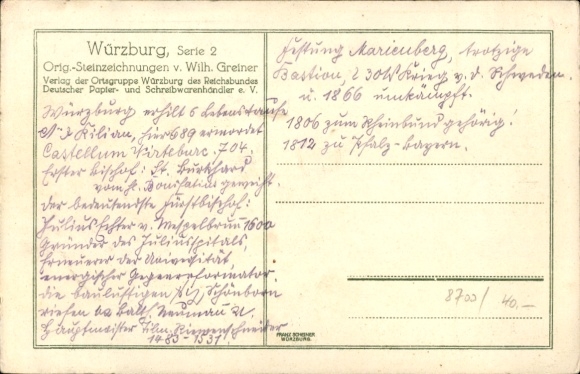 Würzburg, Serie 2
Orig.-Steinzeichnungen v. Wilh. Greiner
Verlag der Ortsgruppe Würzburg des Reichsbundes
Deutscher Papier- und Schreibwarenhändler e. V.
Würzburg erhilt s Lebenstaufe
Kilian, hier 689 ermordet
Castellum Virteburc. 704.
Erster Bischof: St. Burkhard
vom hl. Bonifatius geweiht.
der bedeutendste Fürstbischof:
Julius Echter v. Mespelbrunn 1600
Gründer des Juliusspitals,
Erneuerer der Universität
energischer Gegenreformator.
die baulustigen Schönborn
riefen Balth. Neuman
Hauptmeister Tilm. Riemenschneider
1483-1531
Festung Marienberg, trotzige
Bastion, 30 Krieg v. d. Schweden
u. 1866 umkämpft.
1806 zum Rheinbund gehörig!
1812 zu Pfalz-Bayern.
8700/ 40.-
FRANZ SCHEINER
WÜRZBURG